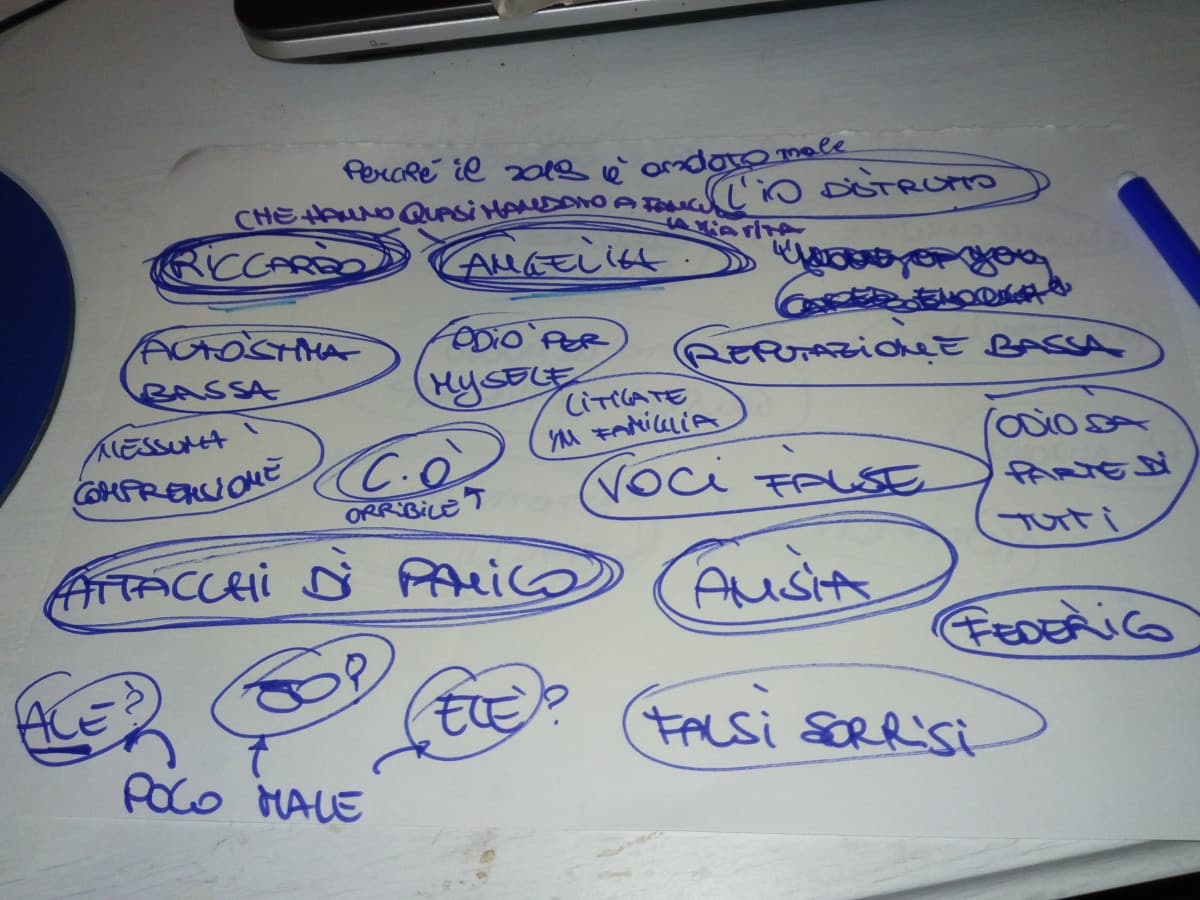 Perché il 2019 è andato male
L'IO DISTRUTTO
CHE HANNO QUASI MANDATO A FANCULO
LA MIA VITA
RICCARDO
ANGELICA
AUTOSTIMA
BASSA
ODIO PER
MYSELF
REPUTAZIONE BASSA
LITIGATE
IN FAMIGLIA
NESSUNA
COMPRENSIONE
C.O
ORRIBILE
VOCI FALSE
ODIO DA
PARTE DI
TUTTI
ATTACCHI DI PANICO
ANSIA
FEDERICO
ALE?
ELE?
FALSI SORRISI
POCO MALE